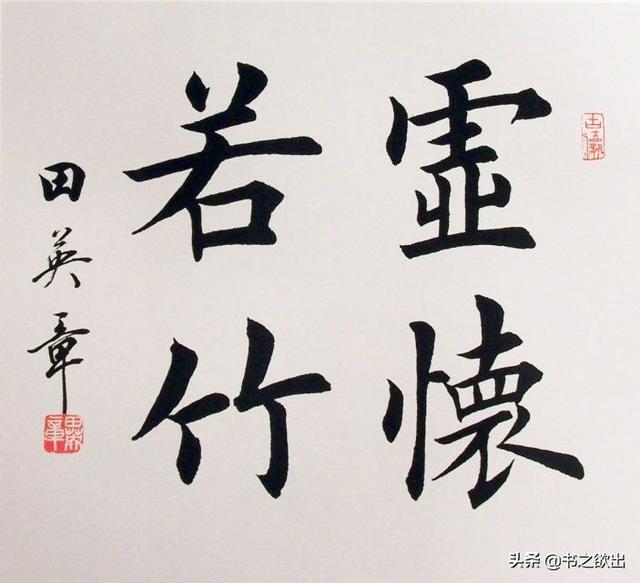 虛懷
若竹
田英章
头条 @书之欲出